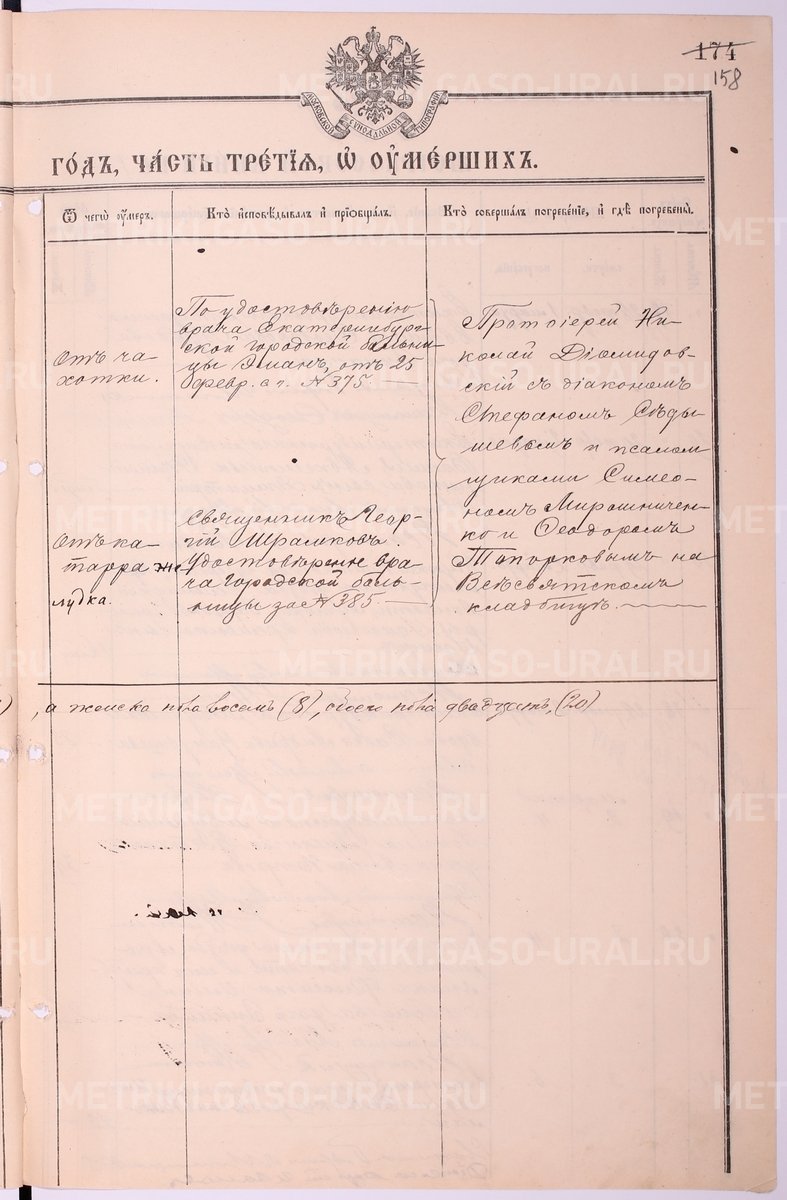 174
158
МОСКОВСКОЙ СѴНОДАЛЬНОЙ ТИПОГРАФІИ
ГО́ДЪ, ЧА́СТЬ ТРЕ́ТІѦ, Ѡ҆ ОУ҆МЕ́РШИХЪ.
Ѿ чегѡ̀ оу҆́мєръ.
Кто̀ и҆сповѣ́дывалъ и҆ прїѡбща́лъ.
Кто̀ соверша́лъ погребе́нїе, и҆ гдѣ̀ погребены̀.
Отъ ча-
хотки.
По удостовѣренію
врача Екатеринбург-
ской городской больни-
цы Эман, отъ 25
февр. с. г. № 375. —
Протоіерей Ни-
колай Діомидов-
скій съ діакономъ
Стефаномъ Сѣды-
шевымъ и псалом
щиками Симео-
номъ Мирошничен-
ко и Ѳеодоромъ
Топорковымъ на
Всѣсвятскомъ
кладбищѣ. —
Отъ ка-
тарра же
лудка.
Священникъ Геор-
гій Шрамковъ.
Удостовѣреніе вра-
ча городской боль-
ницы за № 385. —
, а женска пола восемь (8), обоего пола двадцать, (20)
METRIKI.GASO-URAL.RU